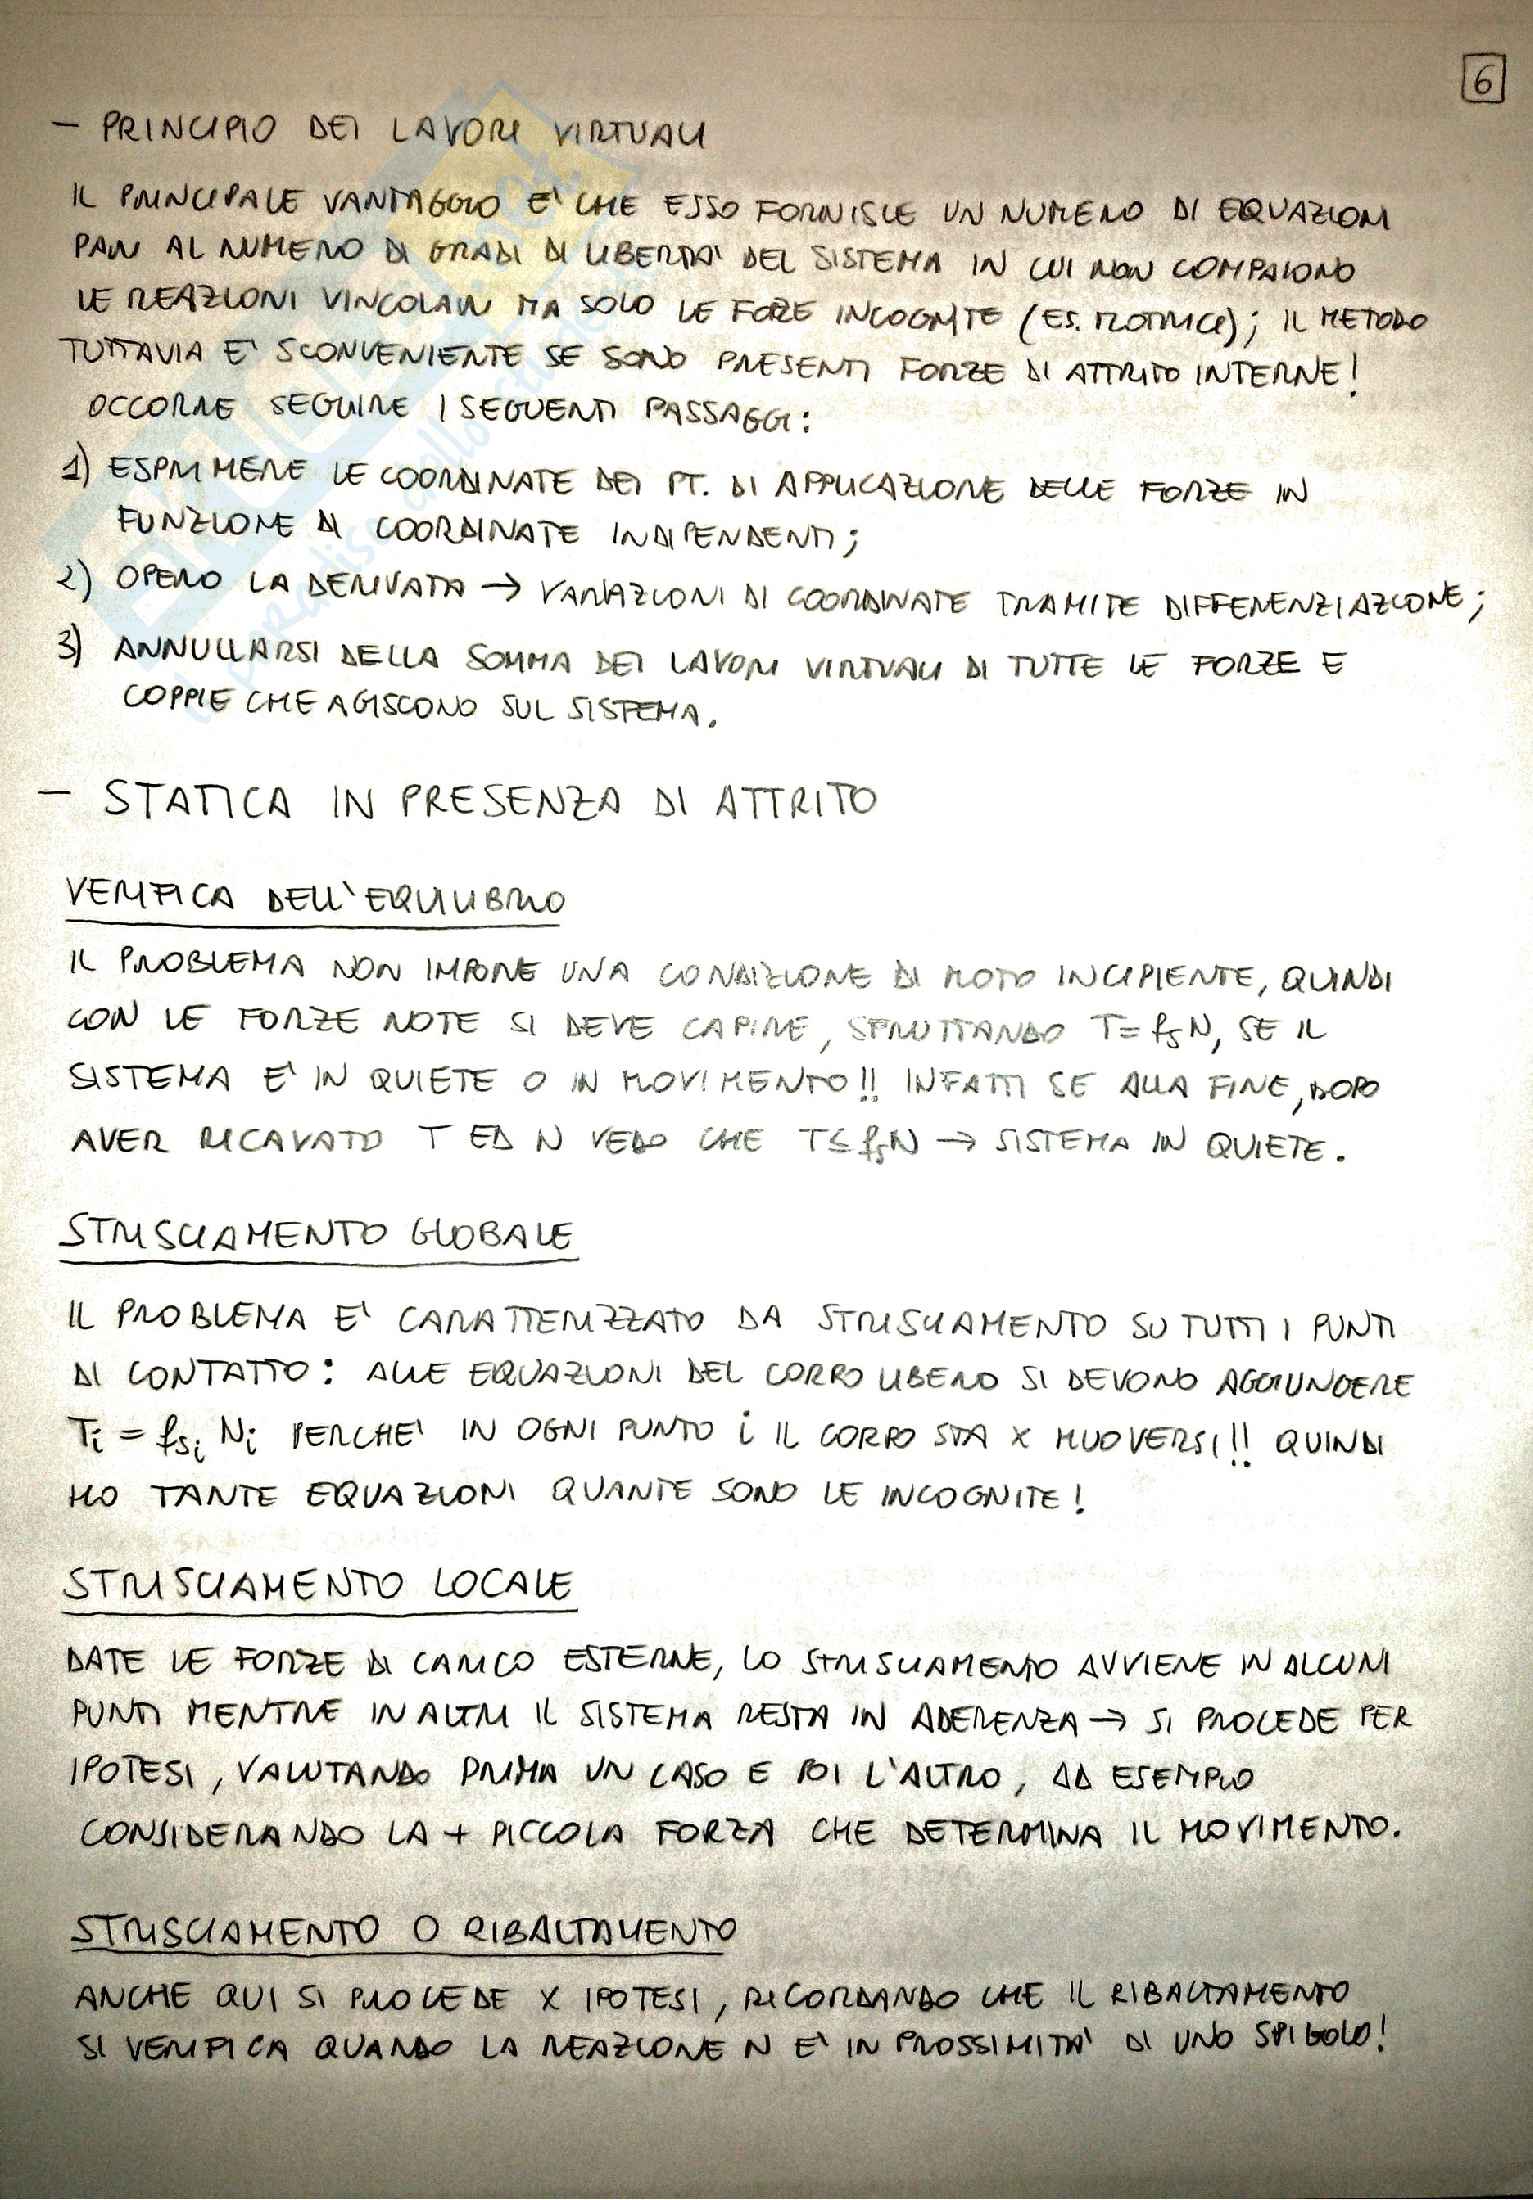 6
- PRINCIPIO DEI LAVORI VIRTUALI
IL PRINCIPALE VANTAGGIO E' CHE ESSO FORNISCE UN NUMERO DI EQUAZIONI
PARI AL NUMERO DI GRADI DI LIBERTA' DEL SISTEMA IN CUI NON COMPAIONO
LE REAZIONI VINCOLARI MA SOLO LE FORZE INCOGNITE (ES. MOTRICE); IL METODO
TUTTAVIA E' SCONVENIENTE SE SONO PRESENTI FORZE DI ATTRITO INTERNE!
OCCORRE SEGUIRE I SEGUENTI PASSAGGI:
1) ESPRIMERE LE COORDINATE DEI PT. DI APPLICAZIONE DELLE FORZE IN
FUNZIONE DI COORDINATE INDIPENDENTI;
2) OPERO LA DERIVATA → VARIAZIONI DI COORDINATE TRAMITE DIFFERENZIAZIONE;
3) ANNULLARSI DELLA SOMMA DEI LAVORI VIRTUALI DI TUTTE LE FORZE E
COPPIE CHE AGISCONO SUL SISTEMA.
- STATICA IN PRESENZA DI ATTRITO
VERIFICA DELL'EQUILIBRIO
IL PROBLEMA NON IMPONE UNA CONDIZIONE DI MOTO INCIPIENTE, QUINDI
CON LE FORZE NOTE SI DEVE CAPIRE, SFRUTTANDO T = fs N, SE IL
SISTEMA E' IN QUIETE O IN MOVIMENTO!! INFATTI SE ALLA FINE, DOPO
AVER RICAVATO T ED N VEDO CHE T ≤ fs N → SISTEMA IN QUIETE.
STRISCIAMENTO GLOBALE
IL PROBLEMA E' CARATTERIZZATO DA STRISCIAMENTO SU TUTTI I PUNTI
DI CONTATTO: ALLE EQUAZIONI DEL CORPO LIBERO SI DEVONO AGGIUNGERE
Ti = fsi Ni PERCHE' IN OGNI PUNTO i IL CORPO STA X MUOVERSI!! QUINDI
HO TANTE EQUAZIONI QUANTE SONO LE INCOGNITE!
STRISCIAMENTO LOCALE
DATE LE FORZE DI CARICO ESTERNE, LO STRISCIAMENTO AVVIENE IN ALCUNI
PUNTI MENTRE IN ALTRI IL SISTEMA RESTA IN ADERENZA → SI PROCEDE PER
IPOTESI, VALUTANDO PRIMA UN CASO E POI L'ALTRO, AD ESEMPIO
CONSIDERANDO LA + PICCOLA FORZA CHE DETERMINA IL MOVIMENTO.
STRISCIAMENTO O RIBALTAMENTO
ANCHE QUI SI PROCEDE X IPOTESI, RICORDANDO CHE IL RIBALTAMENTO
SI VERIFICA QUANDO LA REAZIONE N E' IN PROSSIMITA' DI UNO SPIGOLO!